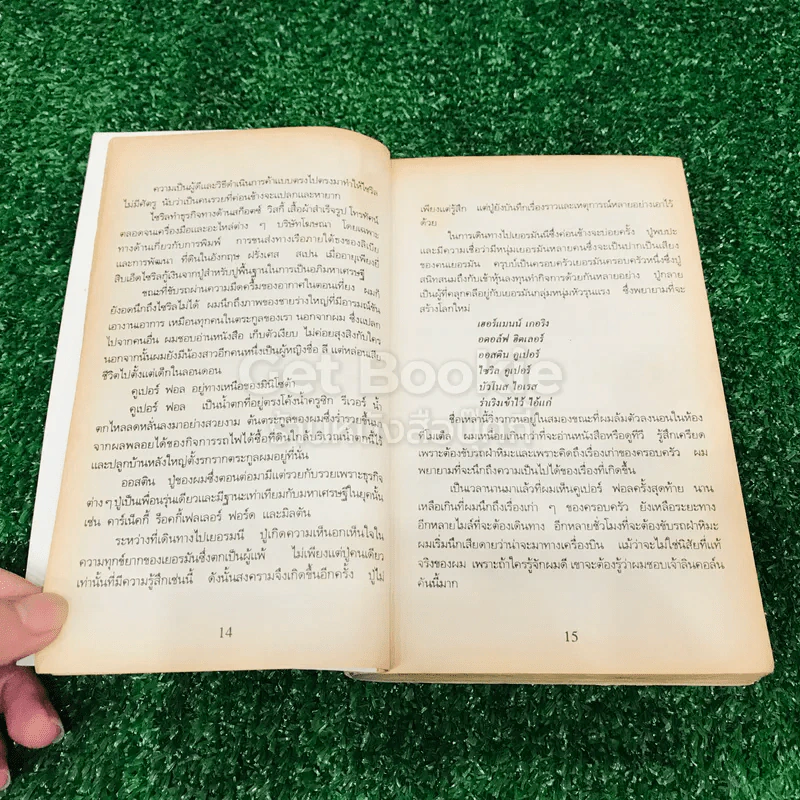 ความเป็นผู้ดีและวิธีดำเนินการค้าแบบตรงไปตรงมาทำให้ไซริล
ไม่มีศัตรู นับว่าเป็นคนรวยที่ค่อนข้างจะแปลกและหายาก
ไซริลทำธุรกิจทางด้านสก๊อตช์ วิสกี้ เสื้อผ้าสำเร็จรูป โทรทัศน์
ตลอดจนเครื่องมือและอะไหล่ต่าง ๆ บริษัทโฆษณา โดยเฉพาะ
ทางด้านเกี่ยวกับการพิมพ์ การขนส่งทางเรือภายใต้ธงของลิเบีย
และการพัฒนา ที่ดินในอังกฤษ ฝรั่งเศส สเปน เมื่ออายุเพียงยี่
สิบเอ็ดไซริลกู้เงินจากปู่สำหรับปูพื้นฐานในการเป็นอภิมหาเศรษฐี
ขณะที่ขับรถผ่านความมืดครึ้มของอากาศในตอนเที่ยง ผมก็
ยังอดนึกถึงไซริลไม่ได้ ผมนึกถึงภาพของชายร่างใหญ่ที่มีอารมณ์ขัน
เอางานเอาการ เหมือนทุกคนในตระกูลของเรา นอกจากผม ซึ่งแปลก
ไปจากคนอื่น ผมชอบอ่านหนังสือ เก็บตัวเงียบ ไม่ค่อยสุงสิงกับใคร
นอกจากนั้นผมยังมีน้องสาวอีกคนหนึ่งเป็นผู้หญิงชื่อ ลี แต่หล่อนเสีย
ชีวิตไปตั้งแต่เด็กในลอนดอน
คูเปอร์ ฟอล อยู่ทางเหนือของมินิโซต้า
คูเปอร์ ฟอล เป็นน้ำตกที่อยู่ตรงโค้งน้ำครูซิก ริเวอร์ น้ำ
ตกไหลลดหลั่นลงมาอย่างสวยงาม ต้นตระกูลของผมซึ่งร่ำรวยขึ้นมา
จากผลพลอยได้ของกิจการรถไฟได้ซื้อที่ดินใกล้บริเวณน้ำตกนี้ไว้
และปลูกบ้านหลังใหญ่ตั้งรกรากตระกูลผมอยู่ที่นั่น
ออสติน ปู่ของผมซึ่งตอนต่อมามีแต่รวยกับรวยเพราะธุรกิจ
ต่างๆ ปู่เป็นเพื่อนรุ่นเดียวและมีฐานะเท่าเทียมกับมหาเศรษฐีในยุคนั้น
เช่น คาร์เน็คกี้ ร็อคกี้เฟลเลอร์ ฟอร์ด และมิลตัน
ระหว่างที่เดินทางไปเยอรมนี ปู่เกิดความเห็นอกเห็นใจใน
ความทุกข์ยากของเยอรมันซึ่งตกเป็นผู้แพ้ ไม่เพียงแต่ปู่คนเดียว
เท่านั้นที่มีความรู้สึกเช่นนี้ ดังนั้นสงครามจึงเกิดขึ้นอีกครั้ง ปู่ไม่
14
เพียงแต่รู้สึก แต่ปู่ยังบันทึกเรื่องราวและเหตุการณ์หลายอย่างเอาไว้
ด้วย
ในการเดินทางไปเยอรมันนีซึ่งค่อนข้างจะบ่อยครั้ง ปู่พบปะ
และมีความเชื่อว่ามีหนุ่มเยอรมันหลายคนซึ่งจะเป็นปากเป็นเสียง
ของคนเยอรมัน ครุบป์เป็นครอบครัวเยอรมันครอบครัวหนึ่งซึ่งปู่
สนิทสนมถึงกับเข้าหุ้นลงทุนทำกิจการด้วยกันหลายอย่าง ปู่กลาย
เป็นผู้ที่คลุกคลีอยู่กับเยอรมันกลุ่มหนุ่มหัวรุนแรง ซึ่งพยายามที่จะ
สร้างโลกใหม่
เฮอร์แมนน์ เกอริง
อดอล์ฟ ฮิตเลอร์
ออสติน คูเปอร์
ไซริล คูเปอร์
บัวโนส ไอเรส
รำเริงเข้าไว้ ไอ้แก่
ชื่อเหล่านี้วิ่งวกวนอยู่ในสมองขณะที่ผมล้มตัวลงนอนในห้อง
ที่โมเต็ล ผมเหนื่อยเกินกว่าที่จะอ่านหนังสือหรือดูทีวี รู้สึกเครียด
เพราะต้องขับรถฝ่าหิมะและเพราะคิดถึงเรื่องเก่าของครอบครัว ผม
พยายามที่จะนึกถึงความเป็นไปได้ของเรื่องที่เกิดขึ้น
เป็นเวลานานมาแล้วที่ผมเห็นคูเปอร์ ฟอลครั้งสุดท้าย นาน
เหลือเกินที่ผมนึกถึงเรื่องเก่า ๆ ของครอบครัว ยังเหลือระยะทาง
อีกหลายไมล์ที่จะต้องเดินทาง อีกหลายชั่วโมงที่จะต้องขับรถฝ่าหิมะ
ผมเริ่มนึกเสียดายว่าน่าจะมาทางเครื่องบิน แม้ว่าจะไม่ใช่นิสัยที่แท้
จริงของผม เพราะถ้าใครรู้จักผมดี เขาจะต้องรู้ว่าผมชอบเจ้าลินคอล์น
คันนี้มาก
15
Get Bookie